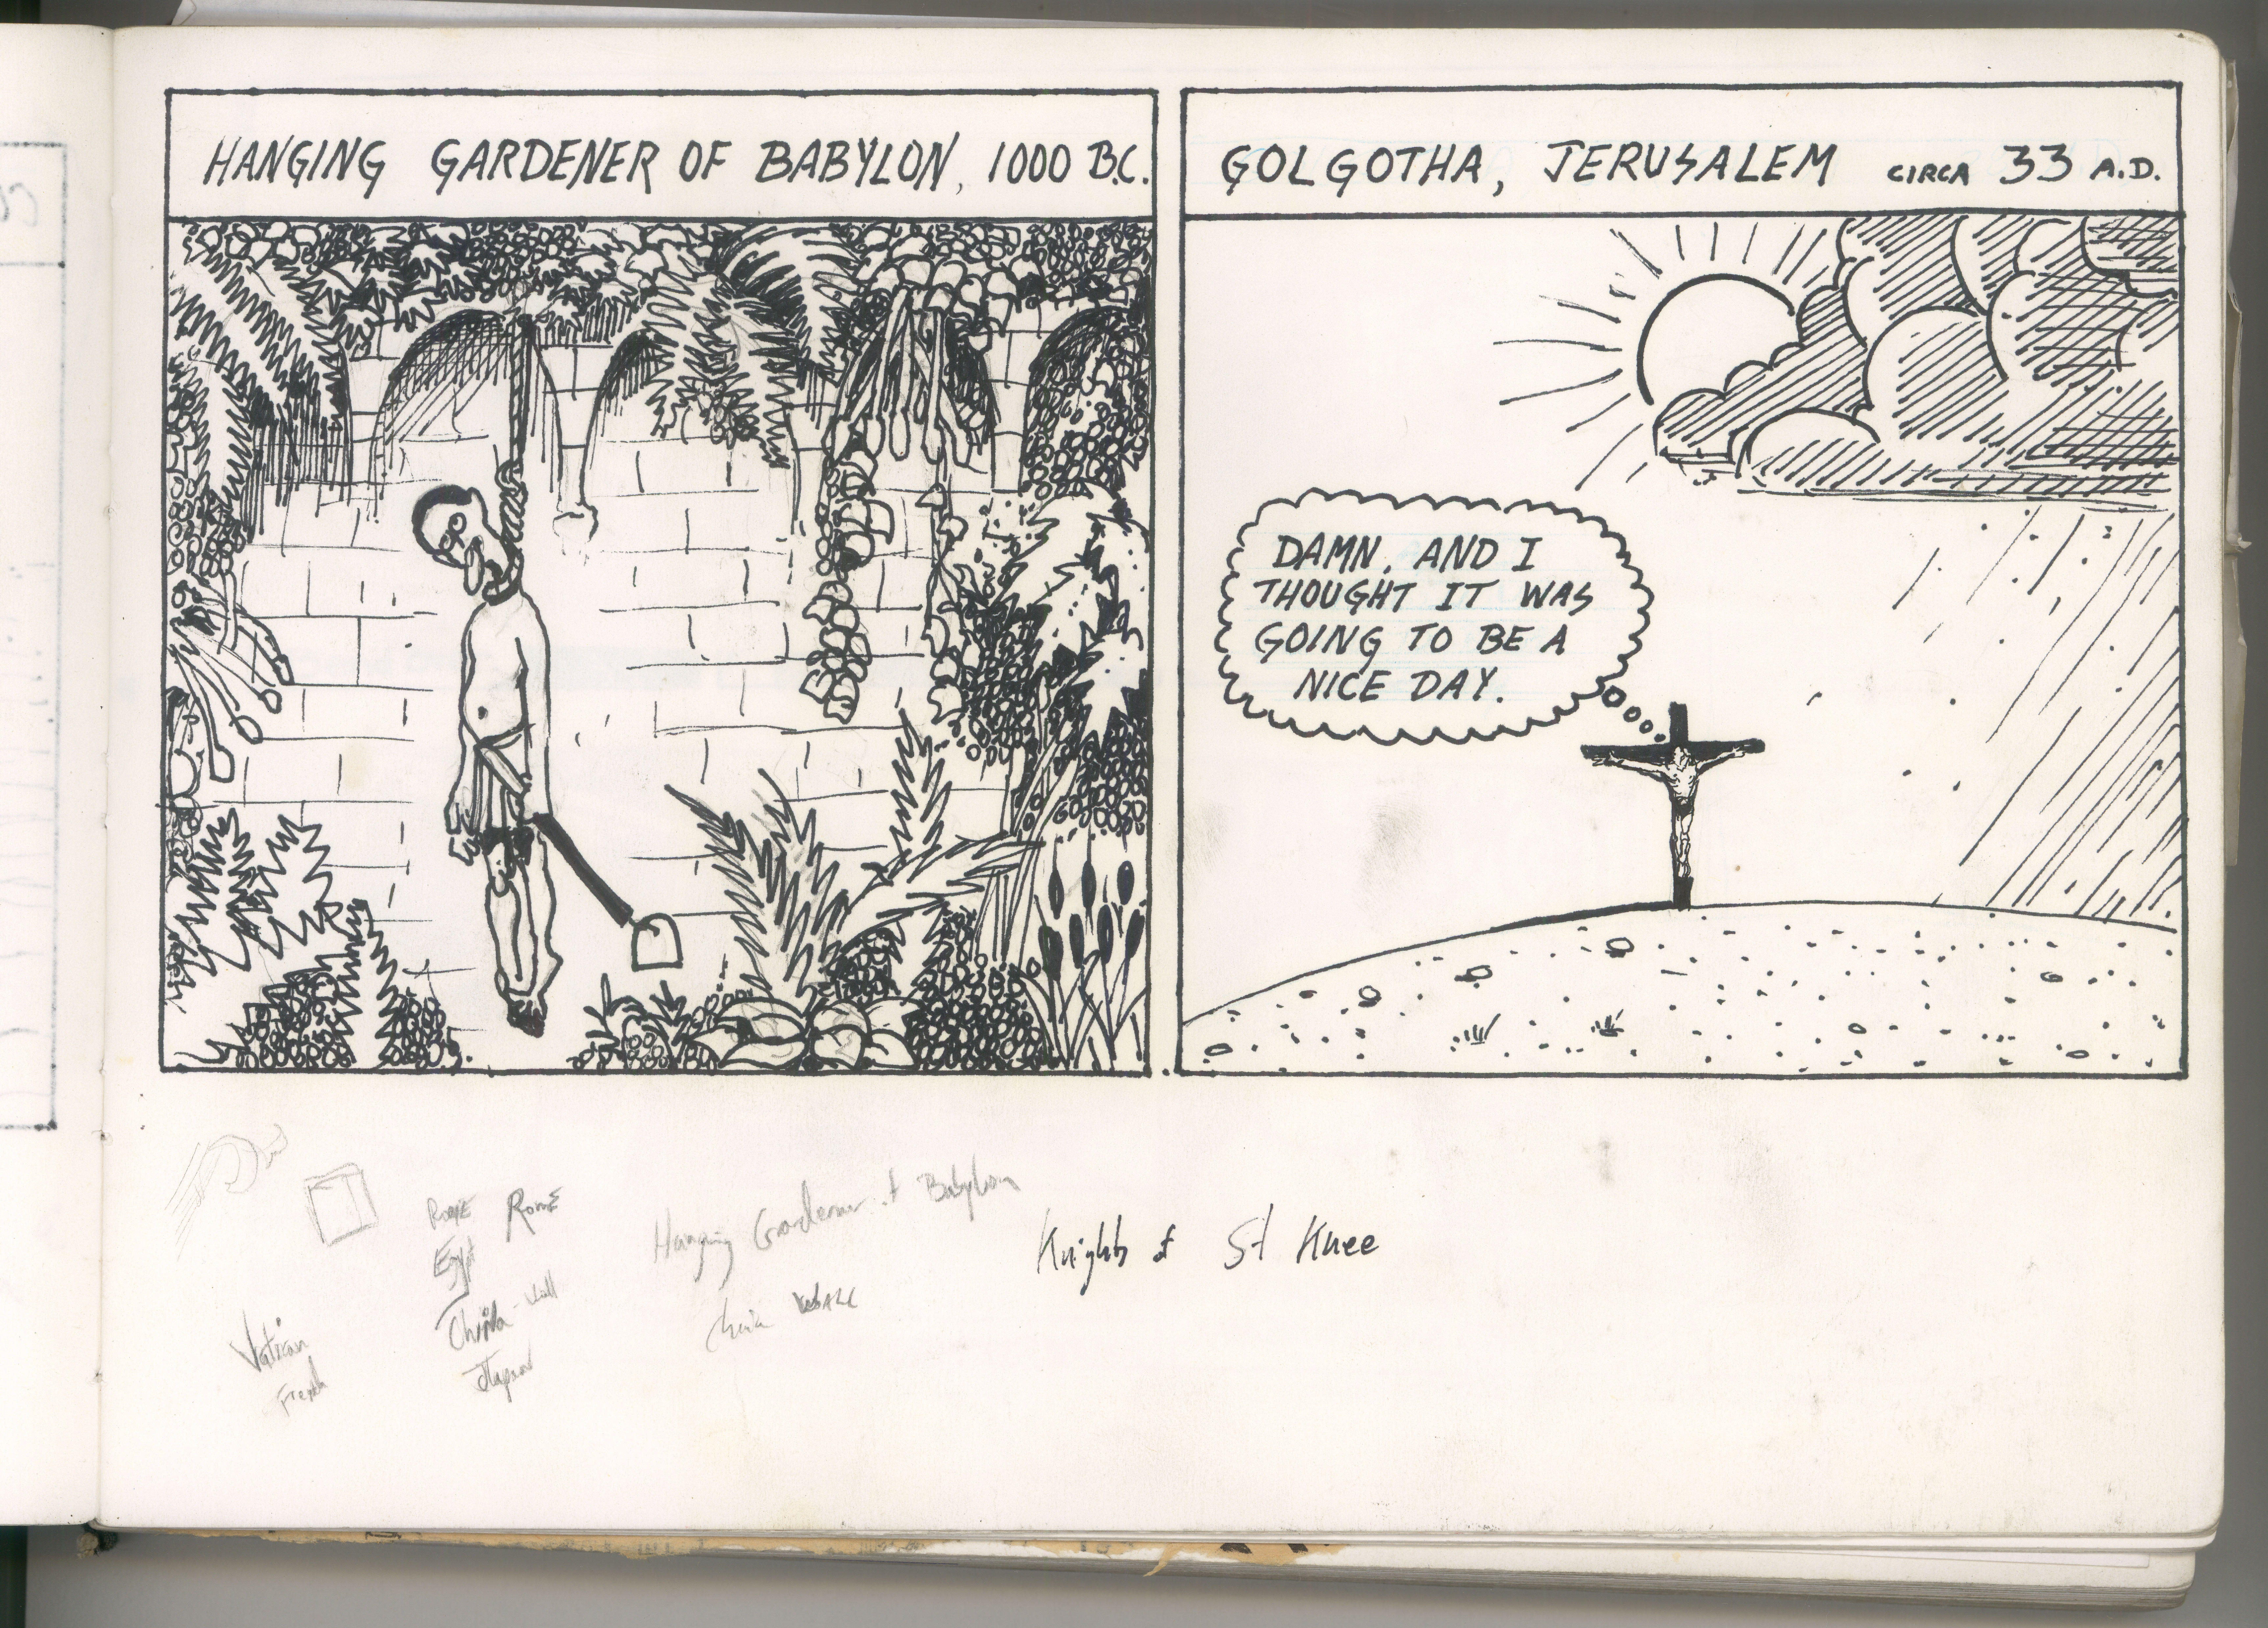 HANGING GARDENER OF BABYLON, 1000 B.C.
GOLGOTHA, JERUSALEM CIRCA 33 A.D.
DAMN. AND I
THOUGHT IT WAS
GOING TO BE A
NICE DAY.
Rome
Egypt
China - Wall
Vatican
French
Hanging Gardener of Babylon
Knights of St Knee